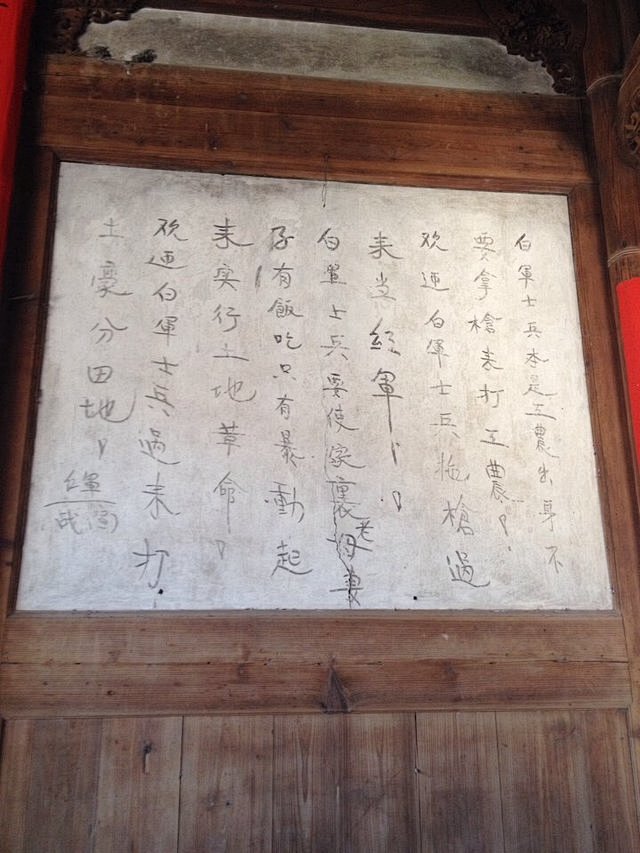 白軍士兵本是工農出身不
要拿槍來打工農！！
欢迎白軍士兵拖槍過
来当红軍！！
白軍士兵要使家裏老母妻
子有飯吃只有暴動起
来实行土地革命！
欢迎白軍士兵過来打
土豪分田地！
红軍